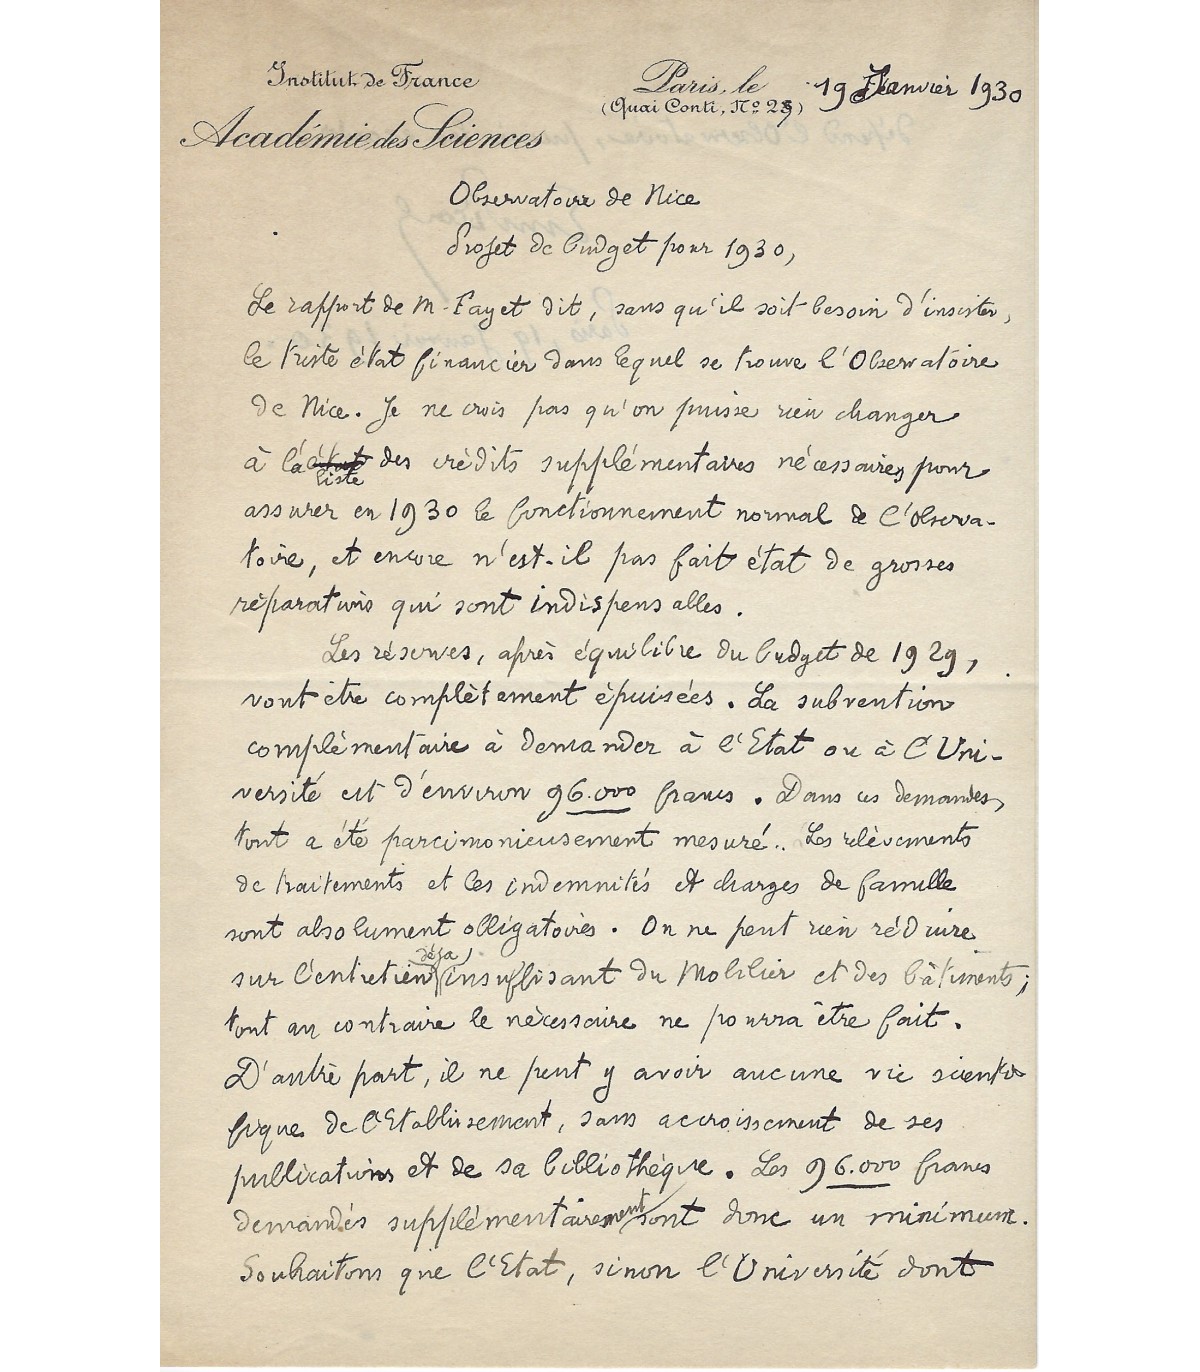 Institut de France
Académie des Sciences
Paris, le 19 Janvier 1930
(Quai Conti, No 23)
Observatoire de Nice
Projet de budget pour 1930,
Le rapport de M. Fayet dit, sans qu'il soit besoin d'insister,
le triste état financier dans lequel se trouve l'Observatoire
de Nice. Je ne crois pas qu'on puisse rien changer
à la liste des crédits supplémentaires nécessaires pour
assurer en 1930 le fonctionnement normal de l'Observa-
toire, et encore n'est-il pas fait état de grosses
réparations qui sont indispensables.
Les réserves, après équilibre du budget de 1929,
vont être complètement épuisées. La subvention
complémentaire à demander à l'Etat ou à l'Uni-
versité est d'environ 96.000 francs. Dans ces demandes,
tout a été parcimonieusement mesuré.. Les relèvements
de traitements et les indemnités et charges de famille
sont absolument obligatoires. On ne peut rien réduire
sur l'entretien déja insuffisant du Mobilier et des bâtiments;
tout au contraire le nécessaire ne pourra être fait.
D'autre part, il ne peut y avoir aucune vie scienti-
fique de l'Etablissement, sans accroissement de ses
publications et de sa bibliothèque. Les 96.000 francs
demandés supplémentairement sont donc un minimum.
Souhaitons que l'Etat, sinon l'Université dont